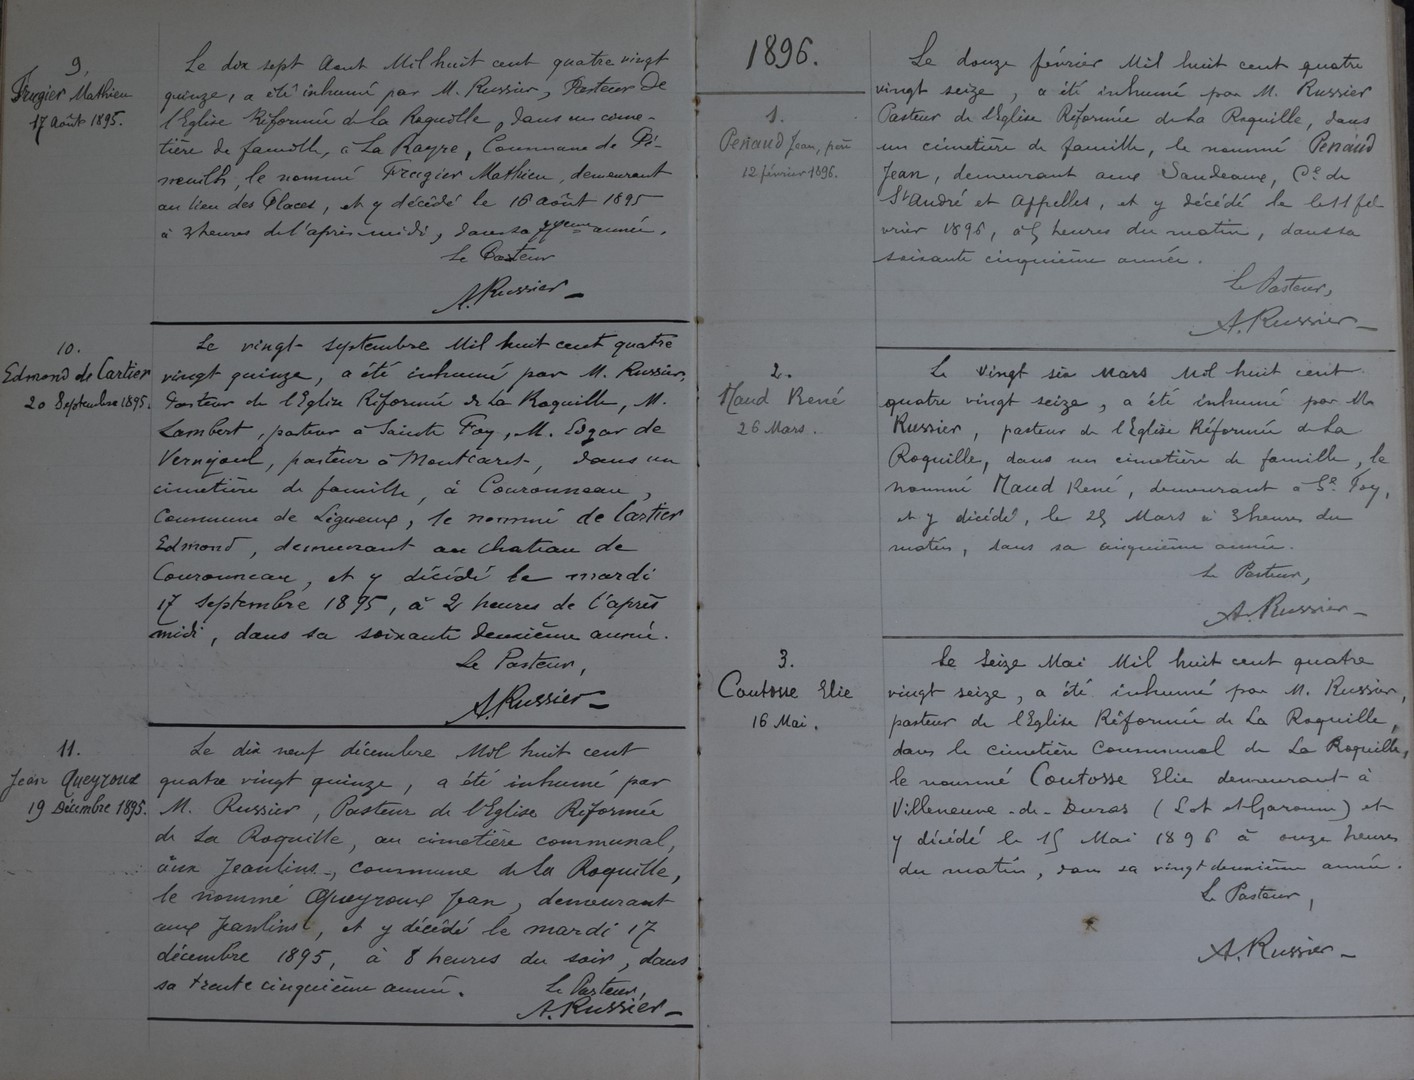 9.
Frugier Mathieu
17 Août 1895.
Le dix sept Aout Mil huit cent quatre vingt
quinze, a été inhumé par M. Russier, Pasteur de
l'Eglise Réformée de La Roquille, dans un cime-
tière de famille, à La Rayre, Commune de Pi-
neuilh, le nommé Frugier Mathieu, demeurant
au lieu des Places, et y décédé le 16 août 1895
à 3 heures de l'après-midi, dans sa année.
Le Pasteur
A. Russier
10.
Edmond de Cartier
20 Septembre 1895.
Le vingt septembre Mil huit cent quatre
vingt quinze, a été inhumé par M. Russier,
Pasteur de l'Eglise Réformée de La Roquille, M.
Lambert, pasteur à Sainte Foy, M. Edgar de
Vernejoul, pasteur à Montcaret, dans un
cimetière de famille, à Couronneau,
Commune de Ligueux, le nommé de Cartier
Edmond, demeurant au chateau de
Couronneau, et y décédé le mardi
17 septembre 1895, à 2 heures de l'après
midi, dans sa soixante deuxième année.
Le Pasteur,
A. Russier
11.
Jean Queyroux
19 Décembre 1895.
Le dix neuf décembre Mil huit cent
quatre vingt quinze, a été inhumé par
M. Russier, Pasteur de l'Eglise Réformée
de La Roquille, au cimetière communal,
aux Jeantins, commune de La Roquille,
le nommé Queyroux Jean, demeurant
aux Jeantins, et y décédé le mardi 17
décembre 1895, à 8 heures du soir, dans
sa trente cinquième année.
Le Pasteur,
A. Russier
1896.
1.
Penaud Jean, père
12 février 1896.
Le douze février Mil huit cent quatre
vingt seize, a été inhumé par M. Russier
Pasteur de l'Eglise Réformée de La Roquille, dans
un cimetière de famille, le nommé Penaud
Jean, demeurant aux Vaudeaux, Cne de
St André et Appelles, et y décédé le 11 fé
vrier 1896, à 5 heures du matin, dans sa
soixante cinquième année.
Le Pasteur,
A. Russier
2.
René
26 Mars.
Le vingt six Mars Mil huit cent
quatre vingt seize, a été inhumé par M.
Russier, pasteur de l'Eglise Réformée de La
Roquille, dans un cimetière de famille, le
nommé René, demeurant à Ste Foy,
et y décédé, le 25 Mars à 3 heures du
matin, dans sa cinquième année.
Le Pasteur,
A. Russier
3.
Coutosse Elie
16 Mai.
Le Seize Mai Mil huit cent quatre
vingt seize, a été inhumé par M. Russier,
pasteur de l'Eglise Réformée de La Roquille,
dans le cimetière Communal de La Roquille,
le nommé Coutosse Elie demeurant à
Villeneuve-de-Duras (Lot et Garonne) et
y décédé le 15 Mai 1896 à onze heures
du matin, dans sa vingt deuxième année.
Le Pasteur,
A. Russier